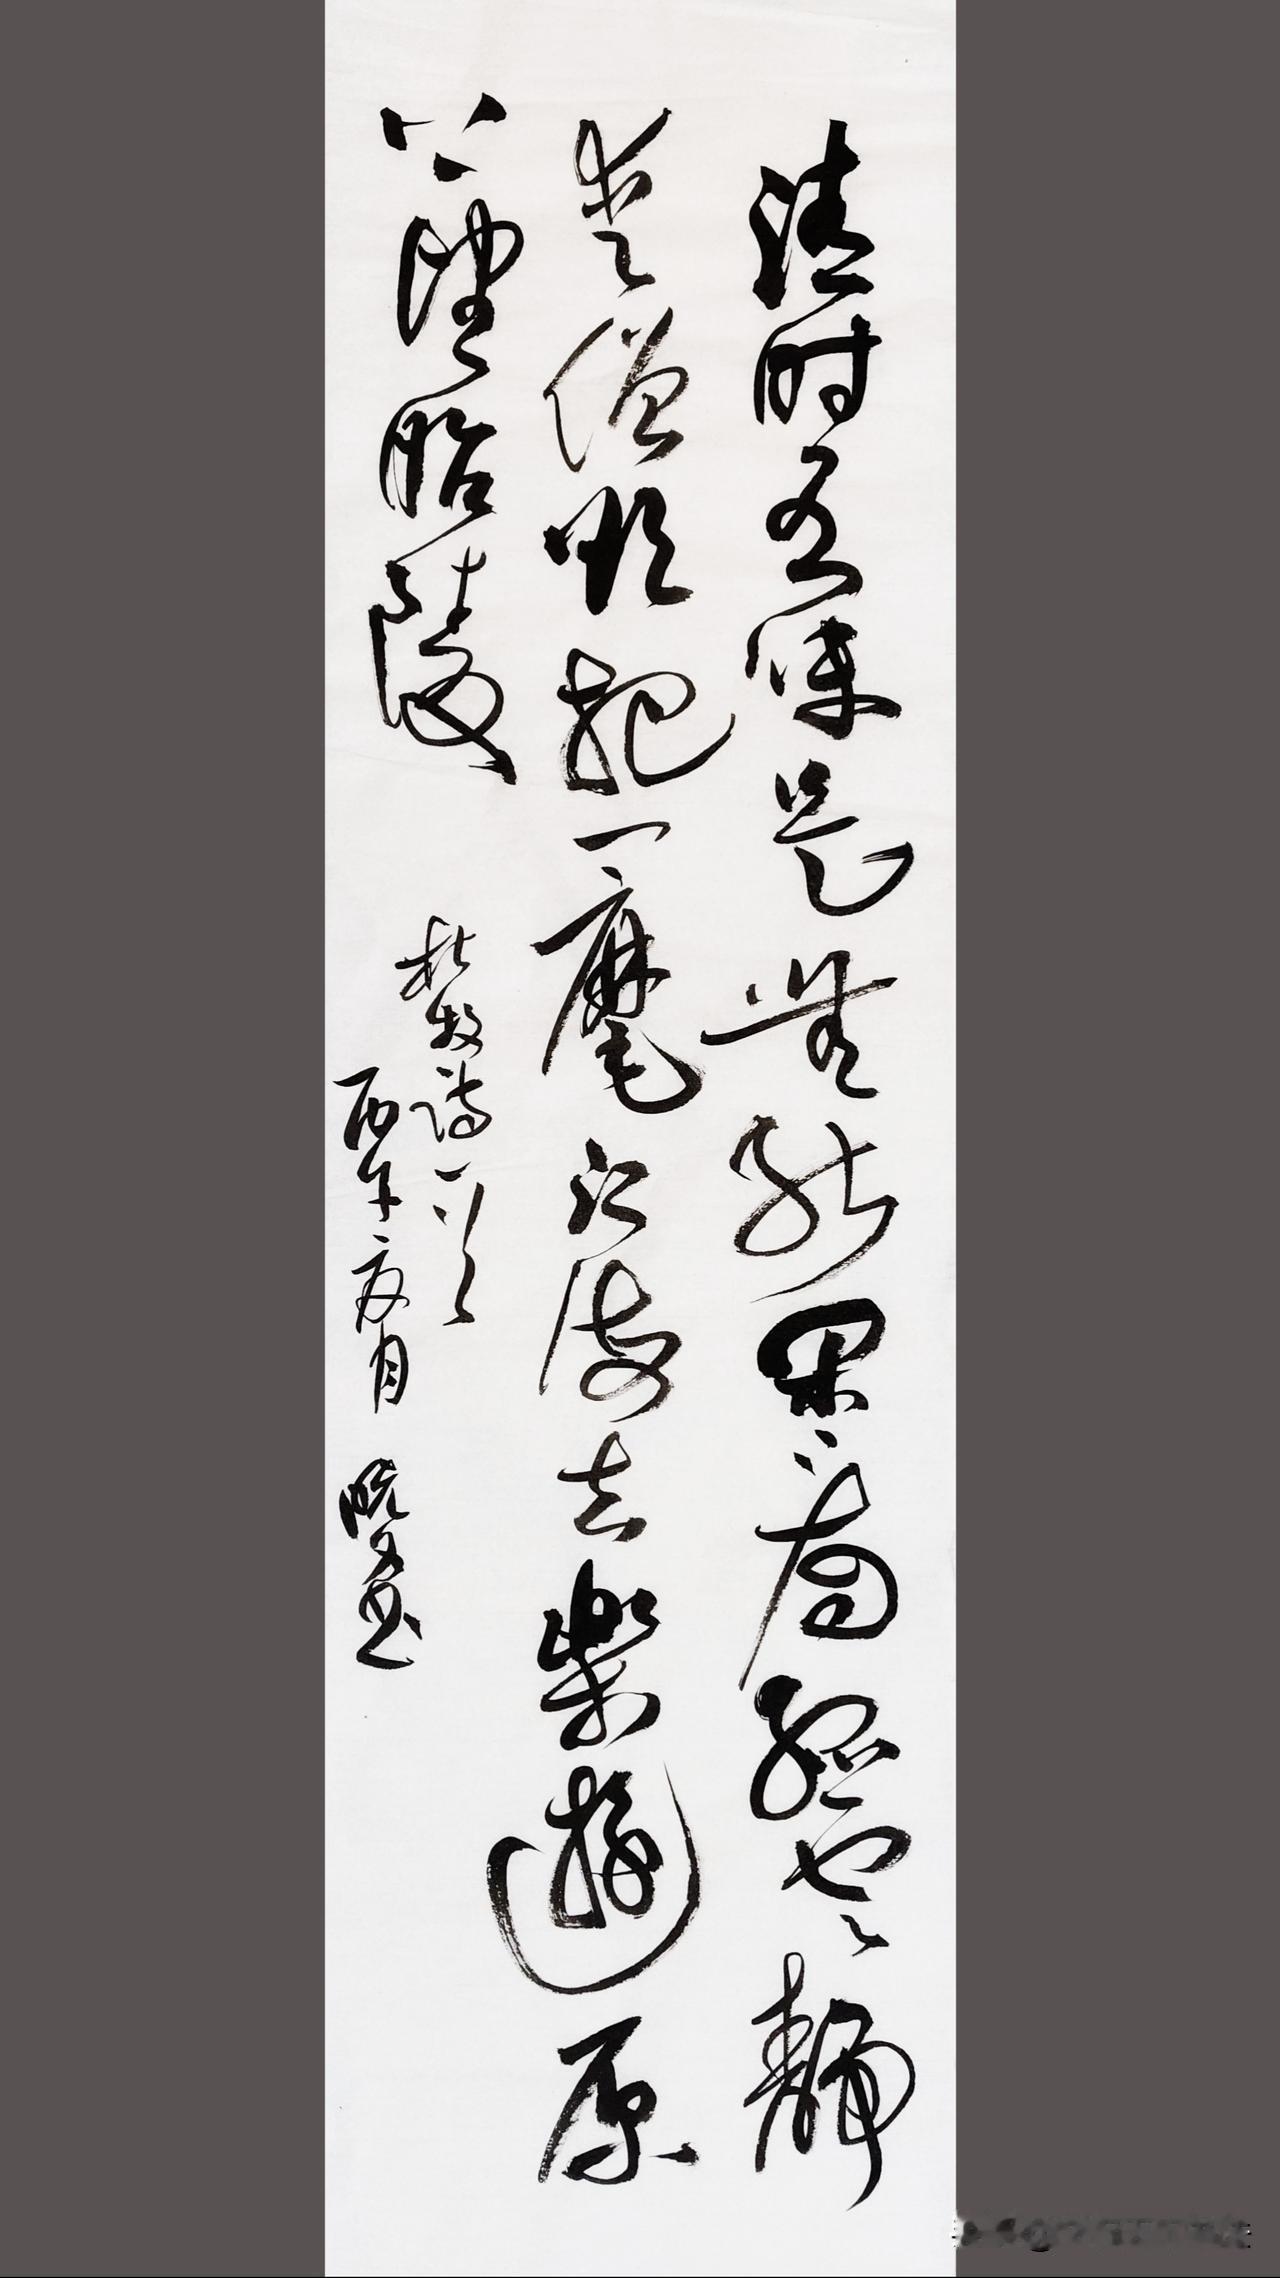 清时有味是無能閑爱孤雲静
爱僧欲把一麾江海去樂遊原
上望昭陵
杜牧诗一首
丙午夏月 書